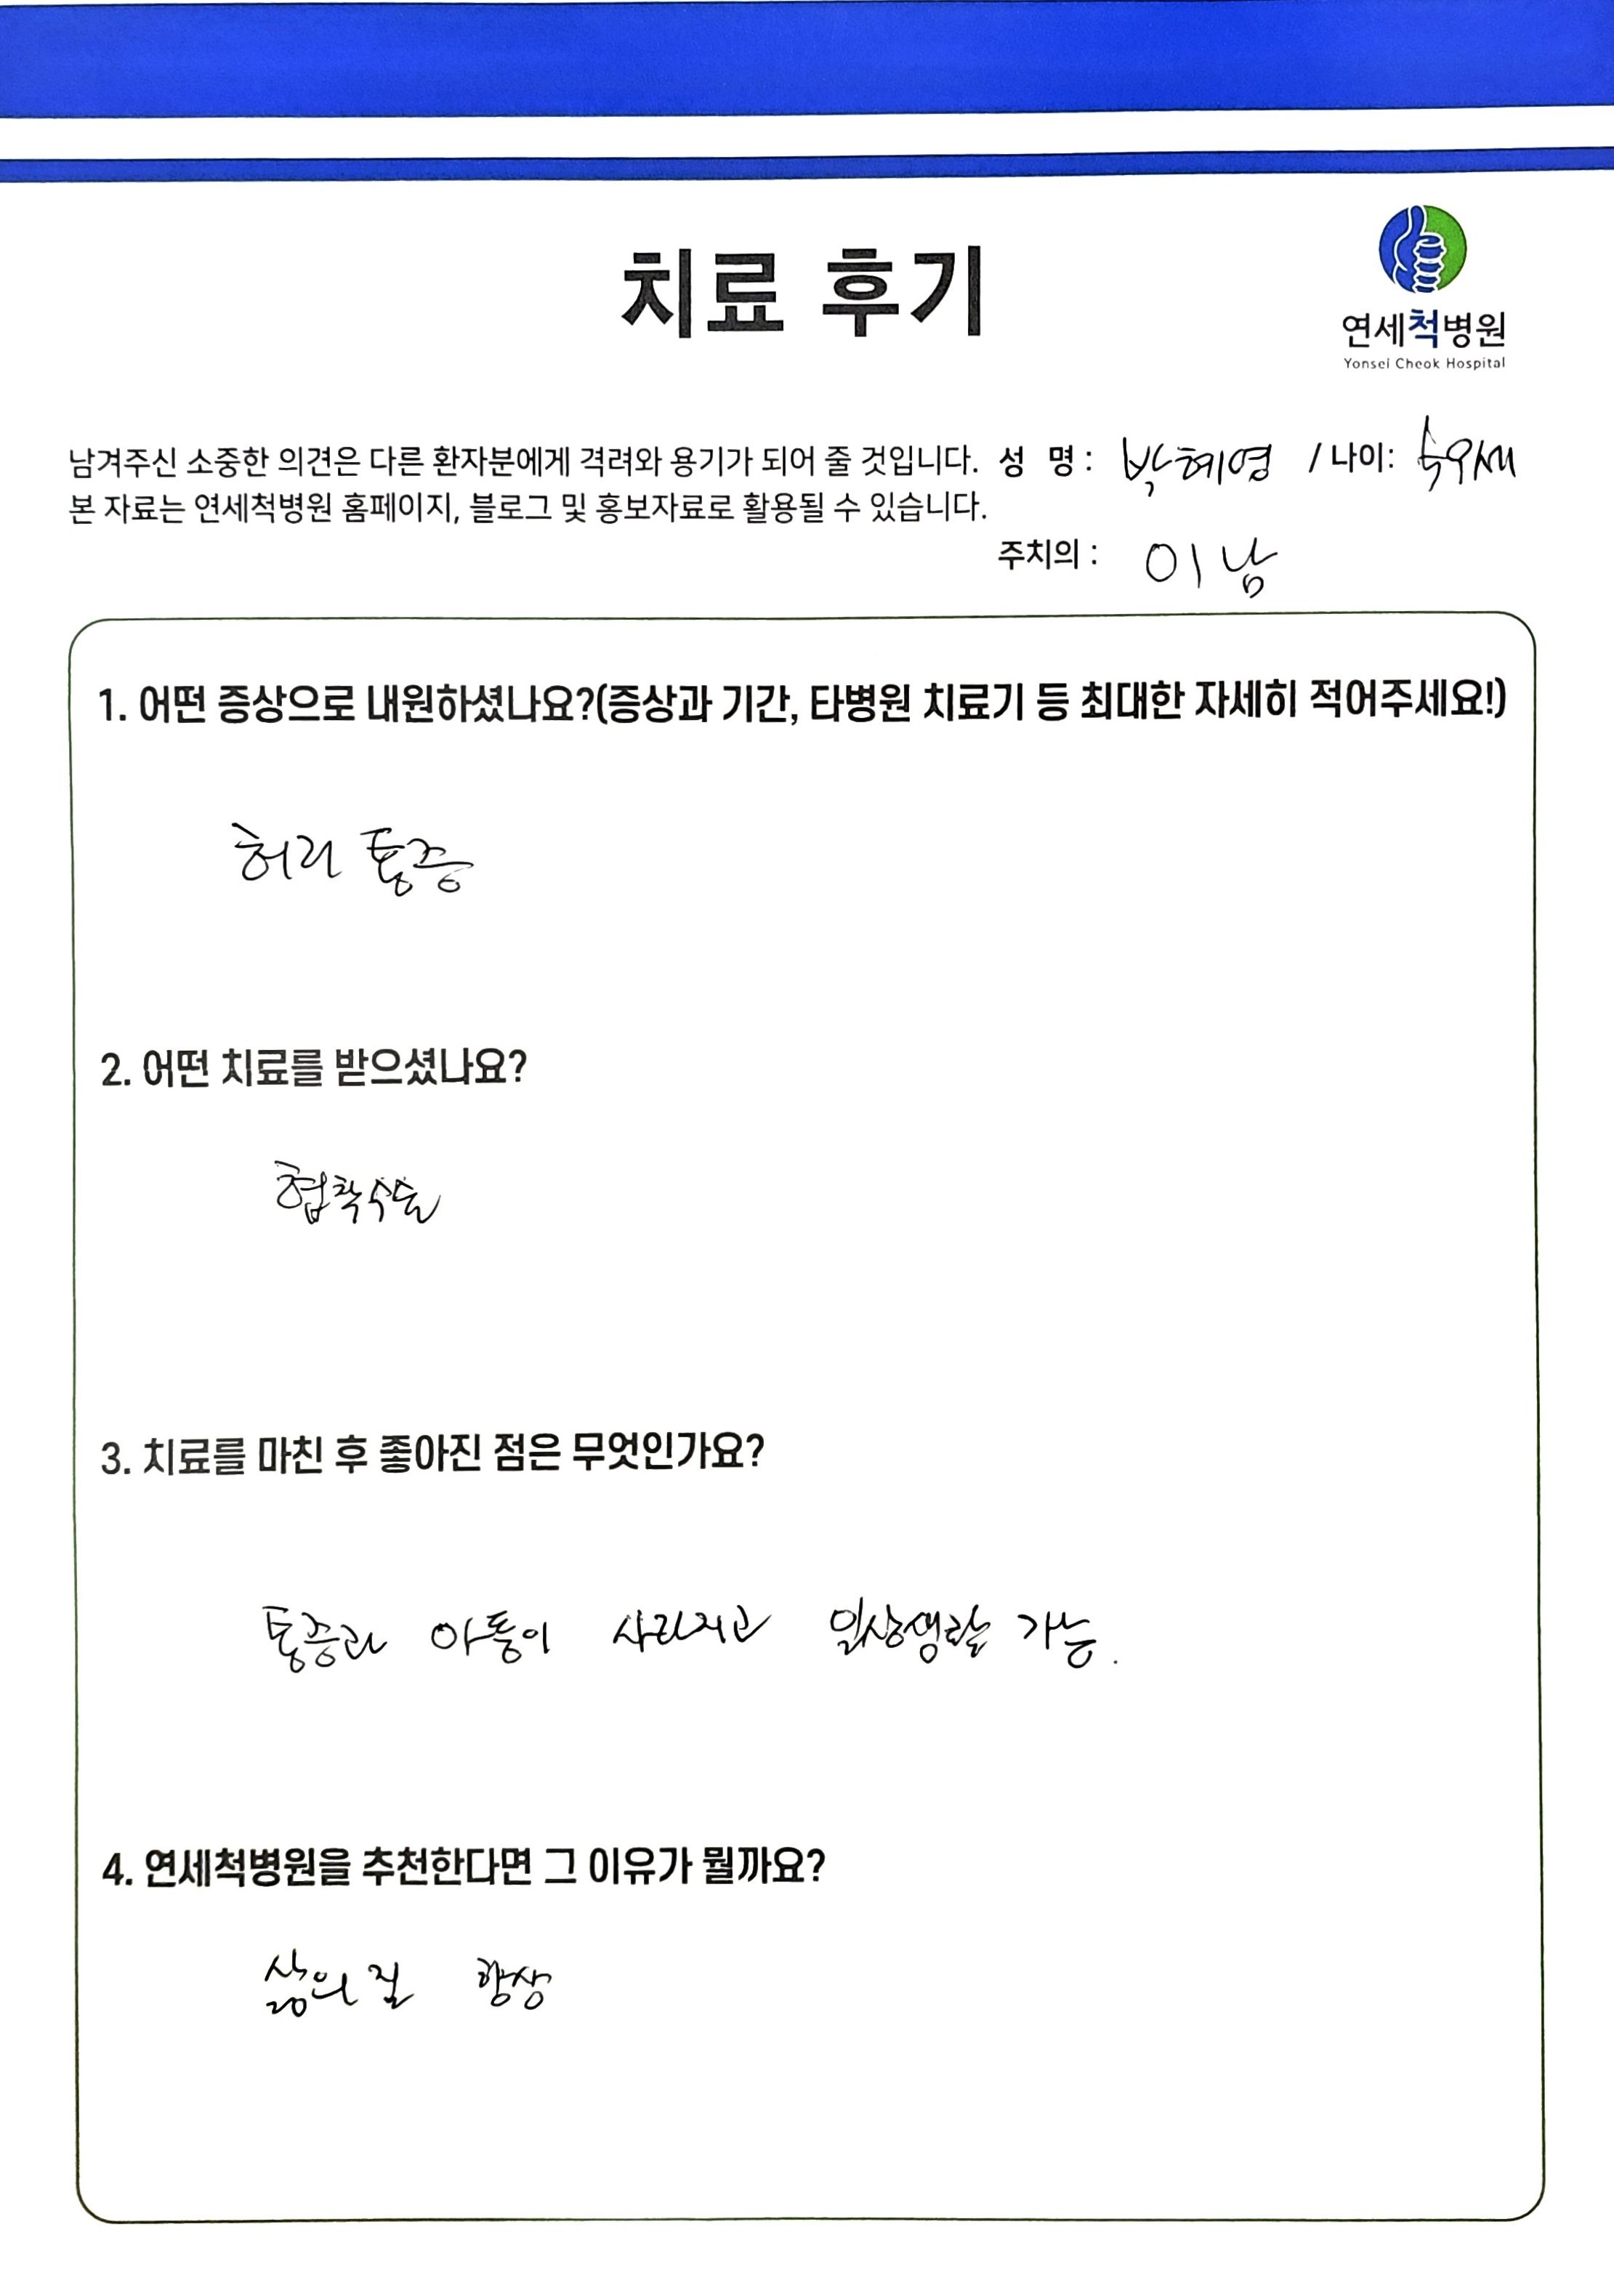 치료 후기
연세척병원
Yonsei Cheok Hospital
남겨주신 소중한 의견은 다른 환자분에게 격려와 용기가 되어 줄 것입니다. 성 명 : 박혜영 / 나이:
본 자료는 연세척병원 홈페이지, 블로그 및 홍보자료로 활용될 수 있습니다.
주치의 : 이남
1. 어떤 증상으로 내원하셨나요?(증상과 기간, 타병원 치료기 등 최대한 자세히 적어주세요!)
허리 통증
2. 어떤 치료를 받으셨나요?
협착수술
3. 치료를 마친 후 좋아진 점은 무엇인가요?
통증과 야통이 사라지고 일상생활 가능.
4. 연세척병원을 추천한다면 그 이유가 뭘까요?
삶의 질 향상